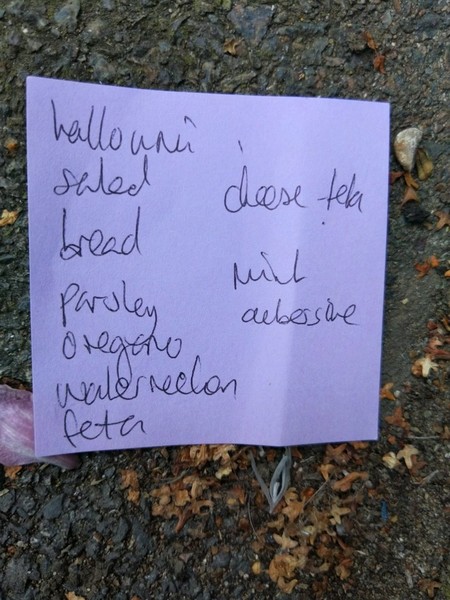 halloumi
salad
bread
parsley
oregano
watermelon
feta
cheese feta
mint
aubessine